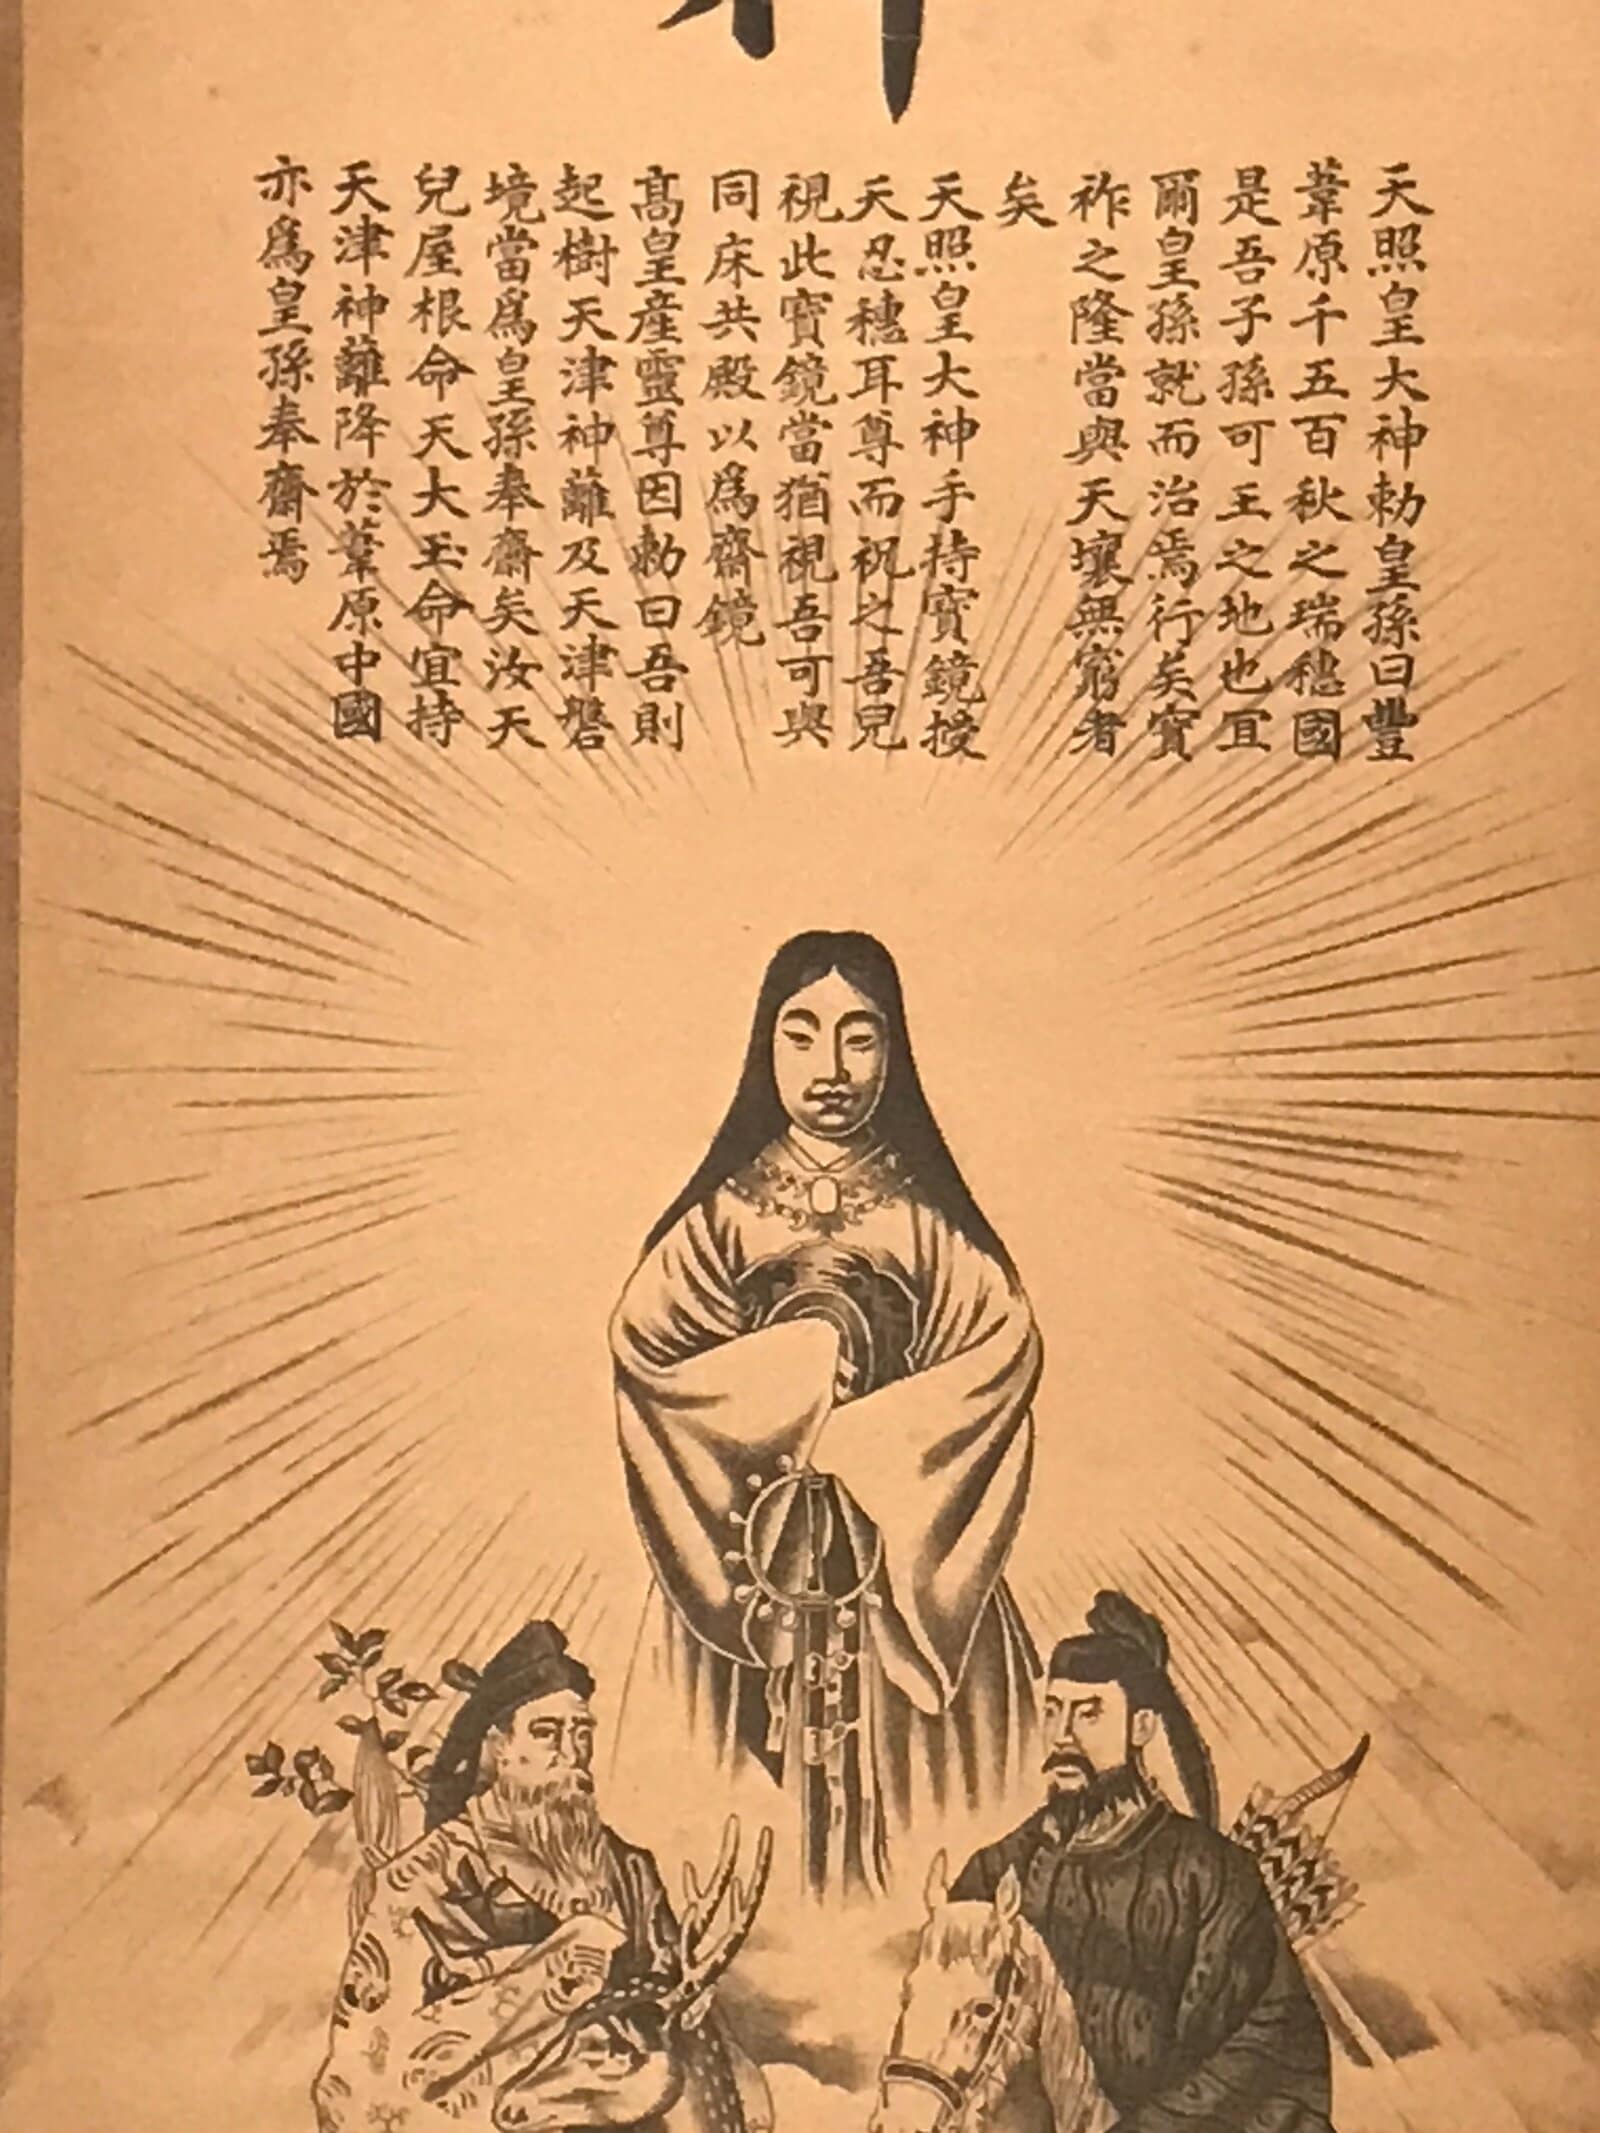 天照皇大神勅皇孫曰豐
葦原千五百秋之瑞穗國
是吾子孫可王之地也宜
爾皇孫就而治焉行矣寶
祚之隆當與天壤無窮者
矣
天照皇大神手持寶鏡授
天忍穗耳尊而祝之吾兒
視此寶鏡當猶視吾可與
同床共殿以爲齋鏡
高皇産靈尊因勅曰吾則
起樹天津神籬及天津磐
境當爲皇孫奉齋矣汝天
兒屋根命天大玉命宜持
天津神籬降於葦原中國
亦爲皇孫奉齋焉